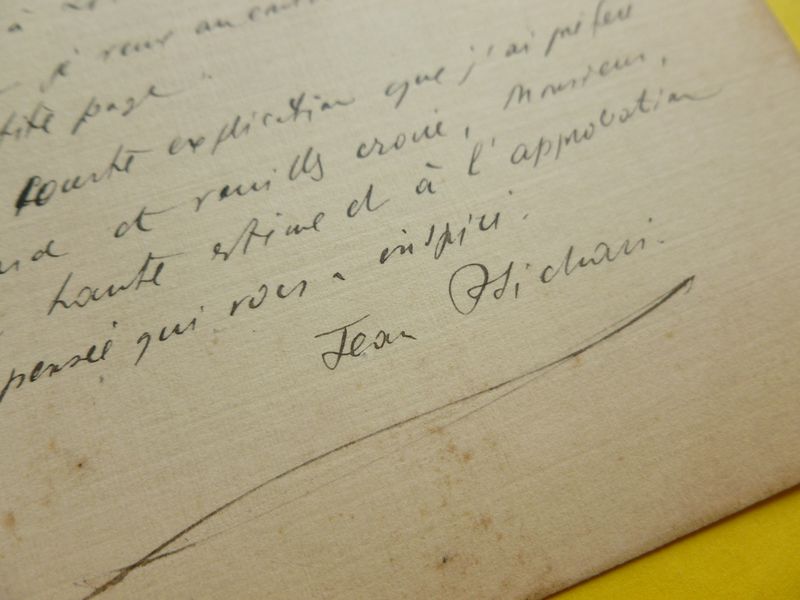 à
je veux au
petite page.
courte explication que j'ai préféré
et veuillez croire, Monsieur,
haute estime et à l'approbation
pensée qui vous a inspiré.
Jean Psichari.